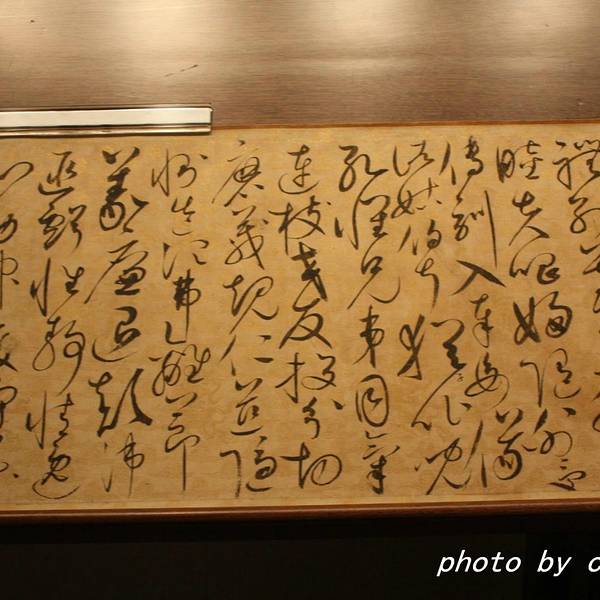 禮別尊卑
睦夫唱婦隨外受
傅訓入奉母儀
諸姑伯叔猶子比兒
孔懷兄弟同氣
連枝交友投分切
磨箴規仁慈隱
惻造次弗離節
義廉退顛沛
匪虧性靜情逸
心動神疲守真
photo by